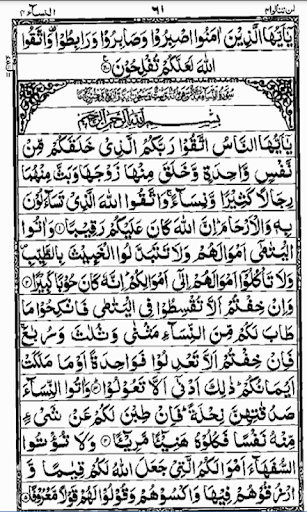 لن تنالوا ٤ ٦١ النسآء ٤
يٰۤاَيُّهَا الَّذِيْنَ اٰمَنُوا اصْبِرُوْا وَصَابِرُوْا وَرَابِطُوْا وَاتَّقُوا
اللّٰهَ لَعَلَّكُمْ تُفْلِحُوْنَ
بِسْمِ اللّٰهِ الرَّحْمٰنِ الرَّحِيْمِ
يٰۤاَيُّهَا النَّاسُ اتَّقُوْا رَبَّكُمُ الَّذِيْ خَلَقَكُمْ مِّنْ
نَّفْسٍ وَّاحِدَةٍ وَّخَلَقَ مِنْهَا زَوْجَهَا وَبَثَّ مِنْهُمَا
رِجَالًا كَثِيْرًا وَّنِسَآءً ۚ وَاتَّقُوا اللّٰهَ الَّذِيْ تَسَآءَلُوْنَ
بِهٖ وَالْاَرْحَامَ ؕ اِنَّ اللّٰهَ كَانَ عَلَيْكُمْ رَقِيْبًا ﴿۱﴾ وَاٰتُوا
الْيَتٰمٰۤى اَمْوَالَهُمْ وَلَا تَتَبَدَّلُوا الْخَبِيْثَ بِالطَّيِّبِ
وَلَا تَاْكُلُوْۤا اَمْوَالَهُمْ اِلٰۤى اَمْوَالِكُمْ ؕ اِنَّهٗ كَانَ حُوْبًا كَبِيْرًا ﴿۲﴾
وَاِنْ خِفْتُمْ اَلَّا تُقْسِطُوْا فِي الْيَتٰمٰى فَانْكِحُوْا مَا
طَابَ لَكُمْ مِّنَ النِّسَآءِ مَثْنٰى وَثُلٰثَ وَرُبٰعَ ۚ
فَاِنْ خِفْتُمْ اَلَّا تَعْدِلُوْا فَوَاحِدَةً اَوْ مَا مَلَكَتْ
اَيْمَانُكُمْ ؕ ذٰلِكَ اَدْنٰۤى اَلَّا تَعُوْلُوْا ﴿۳﴾ وَاٰتُوا النِّسَآءَ
صَدُقٰتِهِنَّ نِحْلَةً ؕ فَاِنْ طِبْنَ لَكُمْ عَنْ شَيْءٍ
مِّنْهُ نَفْسًا فَكُلُوْهُ هَنِيْٓـًٔا مَّرِيْٓـًٔا ﴿۴﴾ وَلَا تُؤْتُوا
السُّفَهَآءَ اَمْوَالَكُمُ الَّتِيْ جَعَلَ اللّٰهُ لَكُمْ قِيٰمًا وَّ
ارْزُقُوْهُمْ فِيْهَا وَاكْسُوْهُمْ وَقُوْلُوْا لَهُمْ قَوْلًا مَّعْرُوْفًا ﴿۵﴾